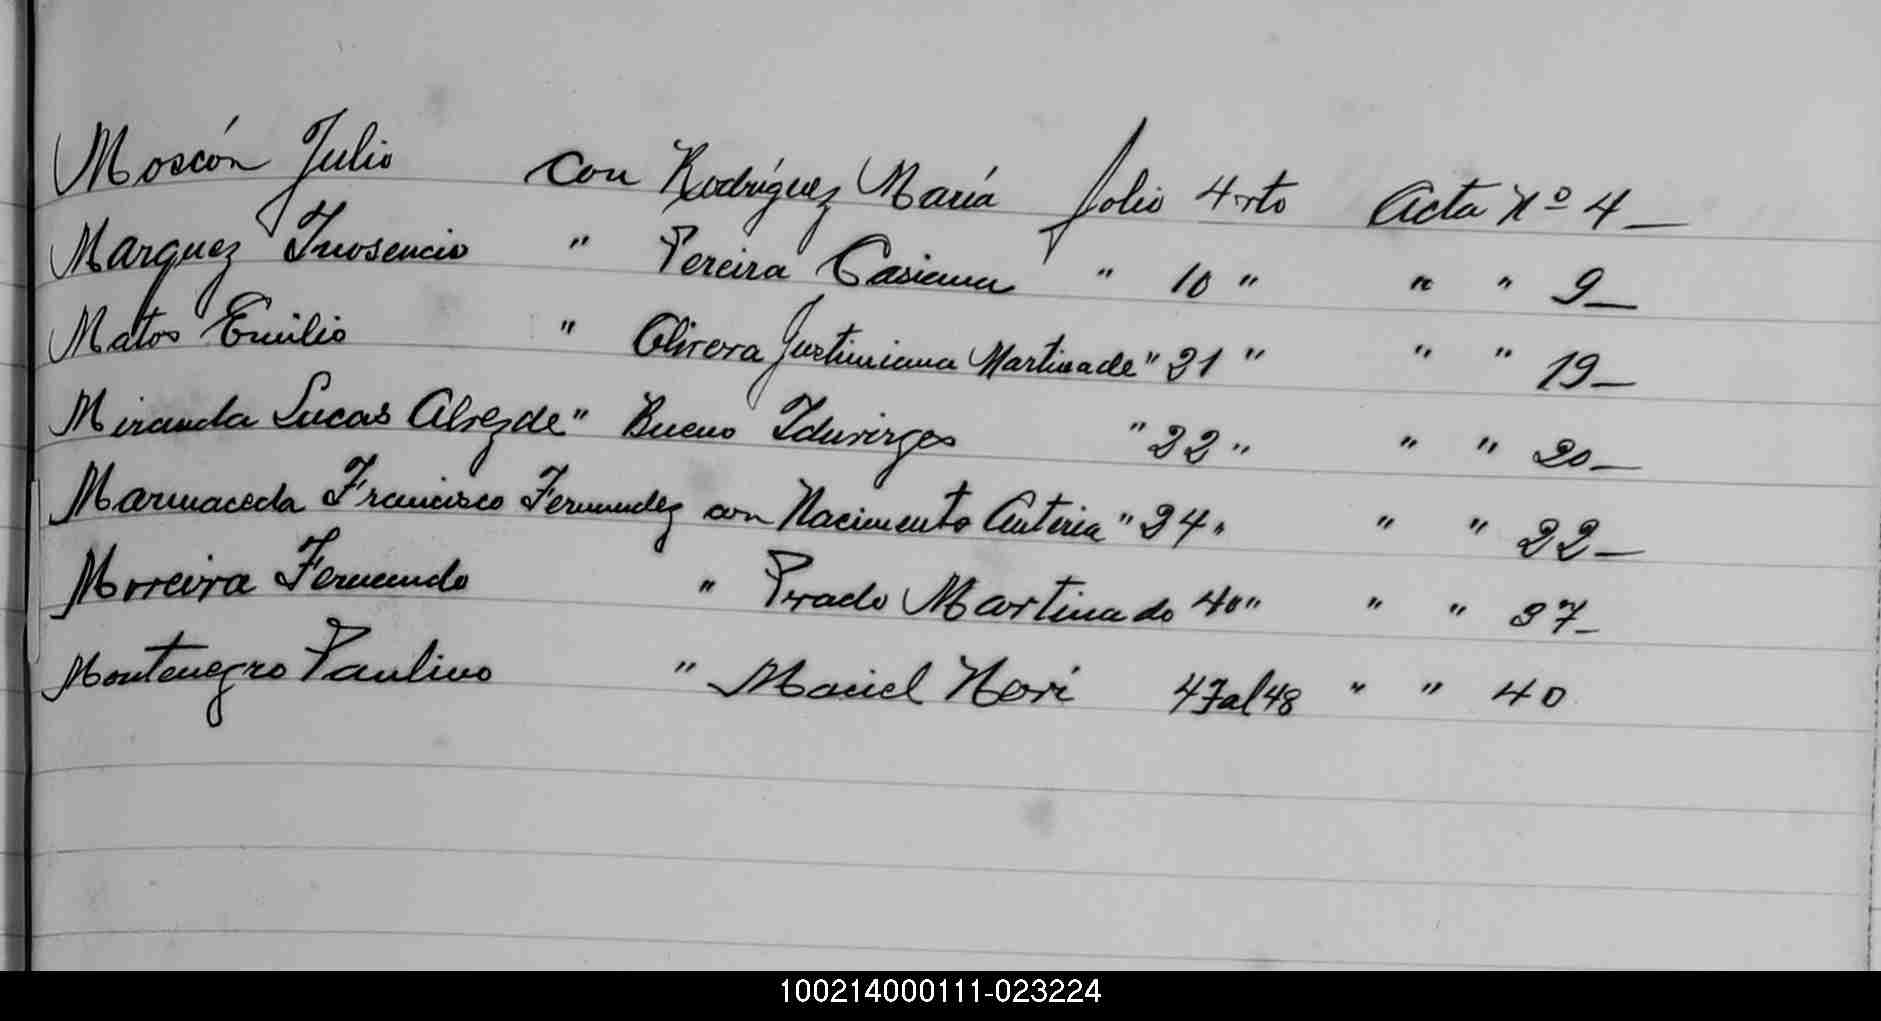 Moscón Julio con Rodríguez María folio 4 vto Acta Nº 4 —
Marquez Inosencio " Pereira Casiana " 10 " " " 9 —
Matos Emilio " Olivera Justiniana Martina de " 21 " " " 19 —
Miranda Lucas Alvez de " Bueno Iduvirges " 22 " " " 20 —
Marmaceda Francisco Fernandez con Nacimento Anteria " 24 " " " 22 —
Morreira Fernando " Prado Martina do 40 " " " 37 —
Montenegro Paulino " Maciel Neri 47 al 48 " " 40
100214000111-023224